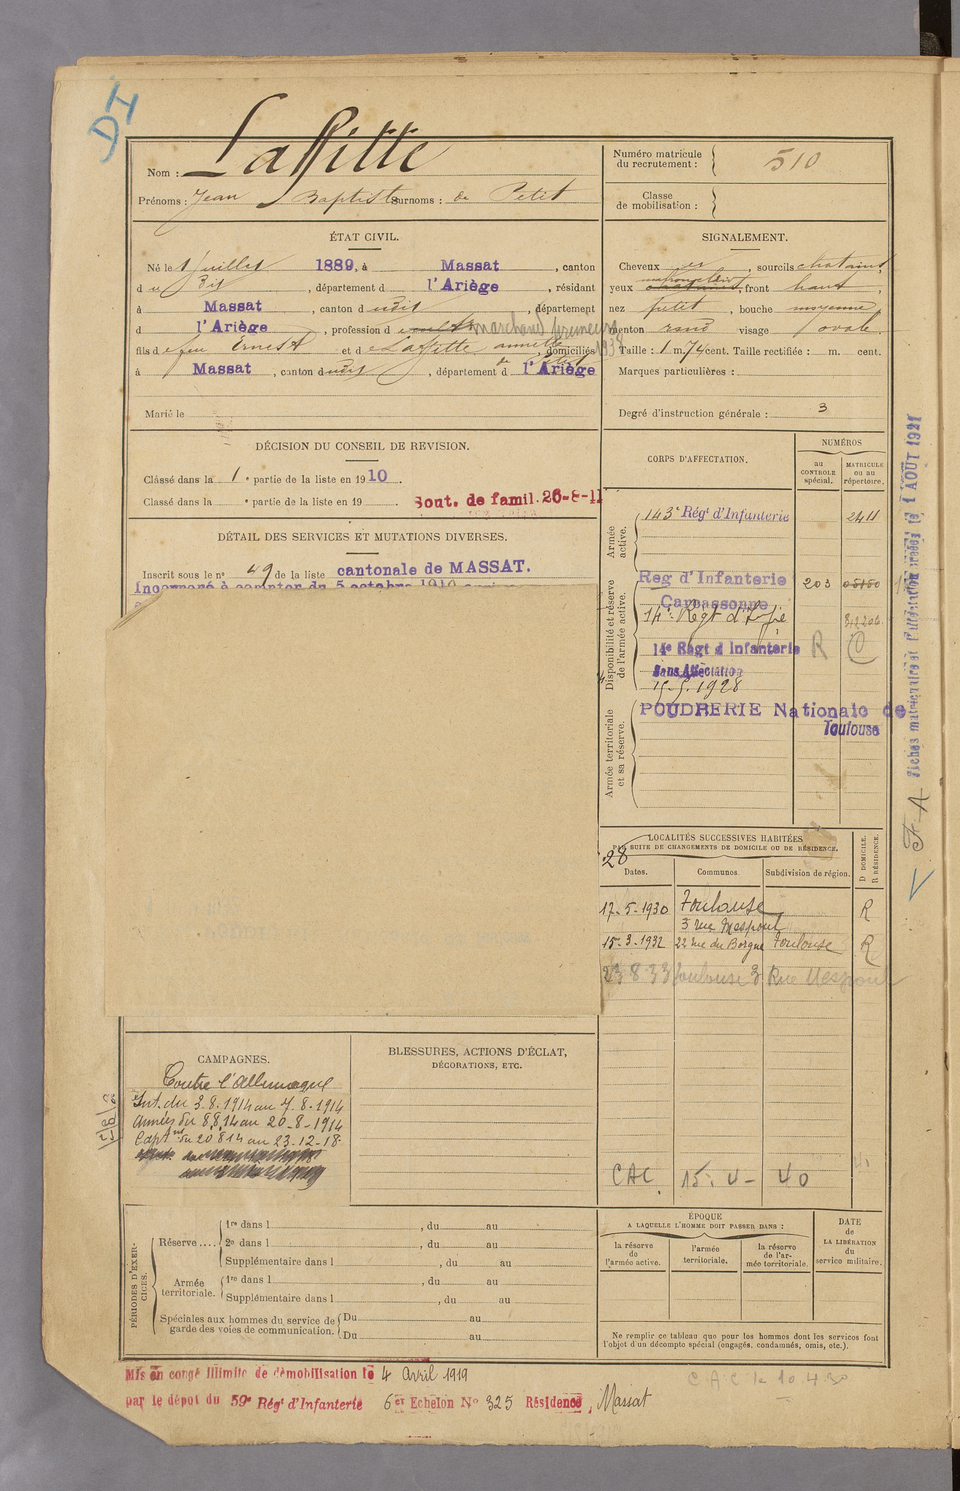 Nom : Laffitte
Prénoms : Jean Baptiste Surnoms : de Petit
Numéro matricule du recrutement : 510
Classe de mobilisation :
ÉTAT CIVIL.
Né le 1 Juillet 1889, à Massat, canton
du dit, département d l'Ariège, résidant
à Massat, canton d udit, département
d l'Ariège, profession d marchand primeurs
1938
fils de feu Ernest et de Laffitte annette, domiciliés
de Petit
à Massat, canton dudit, département d l'Ariège
Marié le
SIGNALEMENT.
Cheveux et, sourcils chatains,
yeux, front haut,
nez petit, bouche moyenne,
menton rond visage ovale.
Taille : 1 m. 74 cent. Taille rectifiée : m. cent.
Marques particulières :
Degré d'instruction générale : 3
DÉCISION DU CONSEIL DE REVISION.
Classé dans la 1e partie de la liste en 1910.
Classé dans la e partie de la liste en 19 Sout. de famil. 26-8-11
DÉTAIL DES SERVICES ET MUTATIONS DIVERSES.
Inscrit sous le no 49 de la liste cantonale de MASSAT.
Incorporé à compter du 5 octobre 1910
CORPS D'AFFECTATION.
NUMÉROS
au CONTROLE spécial.
MATRICULE ou au répertoire.
Armée active.
143e Régt d'Infanterie 2411
Disponibilité et réserve de l'armée active.
Reg d'Infanterie 203
Carcassonne
14e Régt d'Infie
14e Régt d Infanterie R C
Sans Affectation
15.5.1928
Armée territoriale et sa réserve.
POUDRERIE Nationale de
Toulouse
Fiches matriculaires et d'affectation créées le 1 AOÛT 1921
F A
LOCALITÉS SUCCESSIVES HABITÉES
PAR SUITE DE CHANGEMENTS DE DOMICILE OU DE RÉSIDENCE.
28
Dates. Communes. Subdivision de région.
D DOMICILE, R RÉSIDENCE.
17-5-1930 Toulouse R
3 rue Mespoul
15-3-1932 22 rue du Borgne Toulouse R
23 8 33 Toulouse 3 Rue Mespoul
CAC 15. 4 - 40
CAMPAGNES.
Contre l'Allemagne
Int. du 3.8.1914 au 7.8.1914
Armées du 8.8.14 au 20-8-1914
Capté du 20 8 14 au 23-12-18
BLESSURES, ACTIONS D'ÉCLAT,
DÉCORATIONS, ETC.
PÉRIODES D'EXERCICES.
Réserve ....
1re dans l , du au
2e dans l , du au
Supplémentaire dans l , du au
Armée territoriale.
1re dans l , du au
Supplémentaire dans l , du au
Spéciales aux hommes du service de garde des voies de communication.
Du au
Du au
ÉPOQUE
A LAQUELLE L'HOMME DOIT PASSER DANS :
la réserve de l'armée active.
l'armée territoriale.
la réserve de l'armée territoriale.
DATE
DE LA LIBÉRATION
du service militaire.
Ne remplir ce tableau que pour les hommes dont les services font
l'objet d'un décompte spécial (engagés, condamnés, omis, etc.).
Mis en congé illimité de démobilisation le 4 Avril 1919
par le dépôt du 59e Régt d'Infanterie 6er Echelon No 325 Résidence, Massat